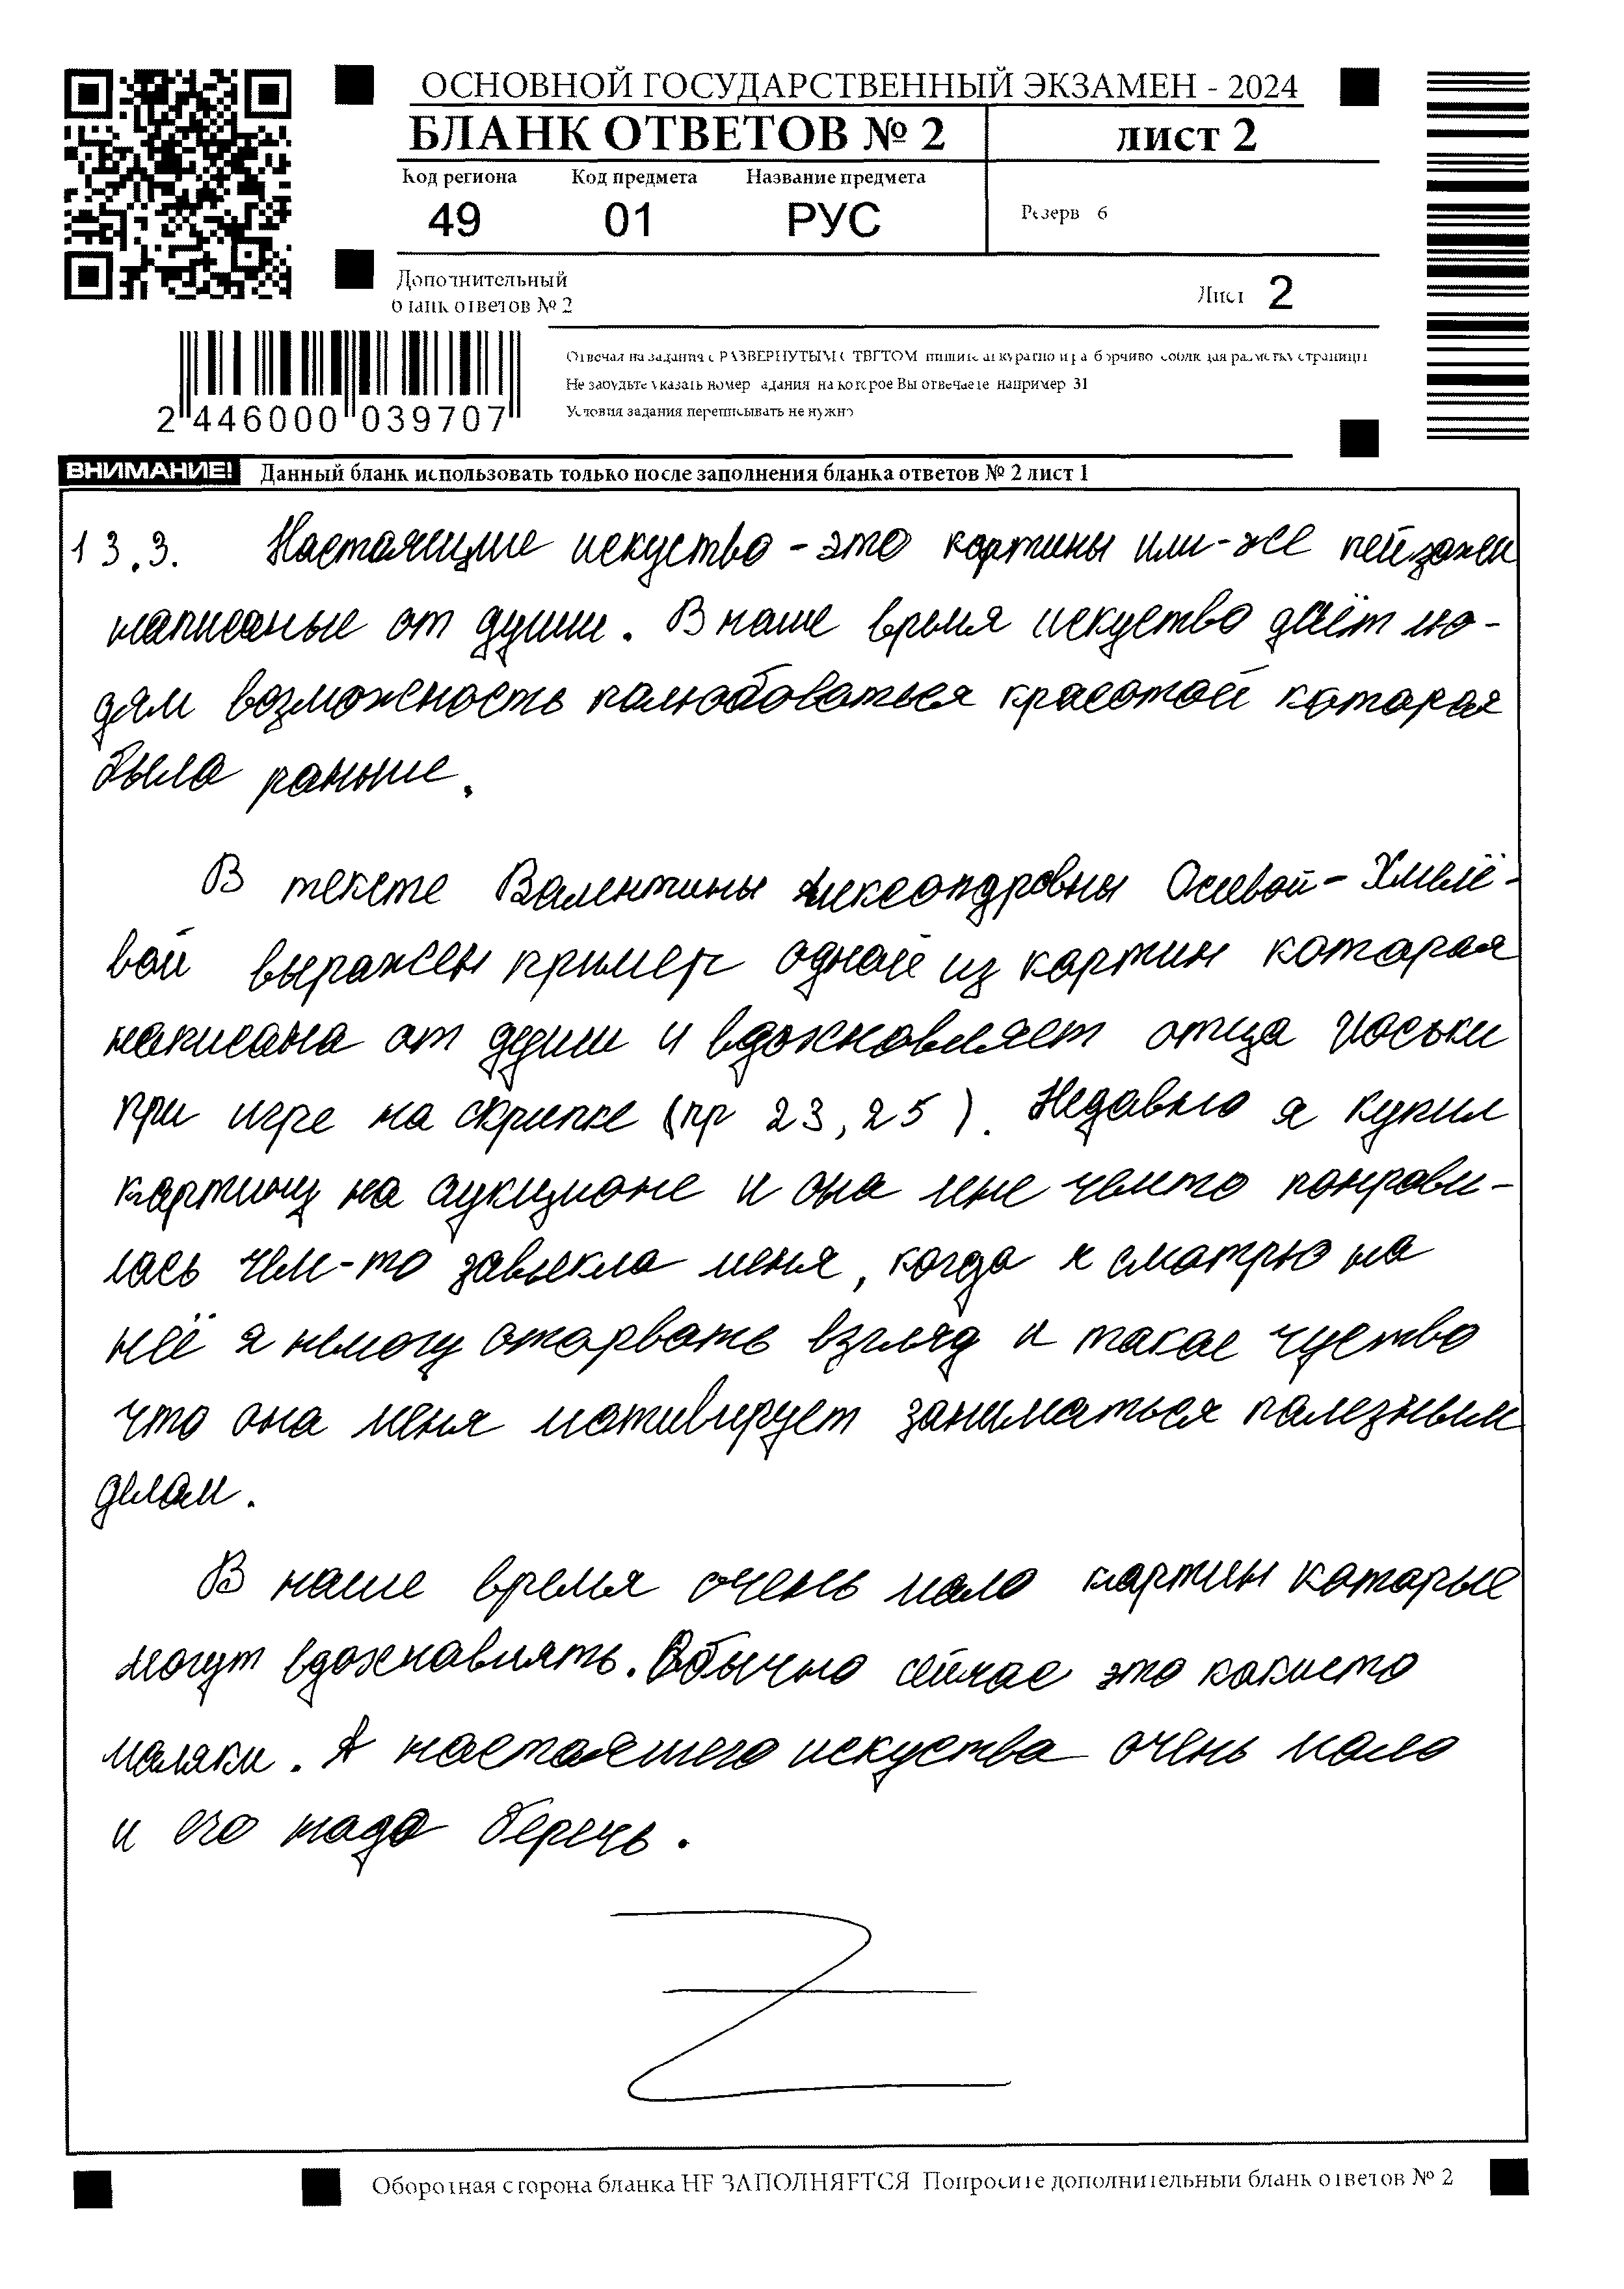 ОСНОВНОЙ ГОСУДАРСТВЕННЫЙ ЭКЗАМЕН - 2024
БЛАНК ОТВЕТОВ № 2
лист 2
Код региона Код предмета Название предмета
49 01 РУС
Резерв 6
Дополнительный
бланк ответов № 2
Лист 2
2 446000 039707
Отвечая на задания с РАЗВЕРНУТЫМ ОТВЕТОМ пишите аккуратно и разборчиво соблюдая разметку страницы
Не забудьте указать номер задания на которое Вы отвечаете например 31
Условия задания переписывать не нужно
ВНИМАНИЕ! Данный бланк использовать только после заполнения бланка ответов № 2 лист 1
13.3. Настоящие искуство - это картины или-же пейзажи
написаные от души. В наше время искуство даёт лю-
дям возможность палюбоваться красотой которая
была раньше.
В тексте Валентины Александровны Осеевой-Хмелё-
вой выражен пример одной из картин которая
написана от души и вдохновляет отца Иоськи
при игре на скрипке (пр 23, 25). Недавно я купил
картину на аукционе и она мне чемто понрави-
лась чем-то завлекла меня, когда я сматрю на
неё я немогу оторвать взгляд и такое чуство
что она меня мативирует заниматься палезным
делам.
В наше время очень мало картин катарые
могут вдохнавлять. Обычно сейчас это какието
маляки. А настоящего искуства очень мало
и его надо беречь.
Оборотная сторона бланка НЕ ЗАПОЛНЯЕТСЯ Попросите дополнительный бланк ответов № 2